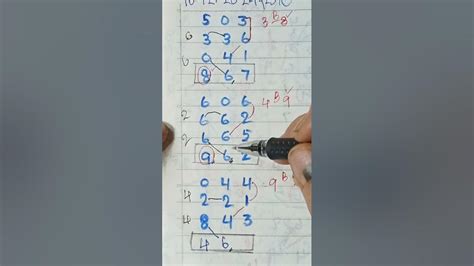 5 0 3
3 B 8
6
3 3 6
0 4 1
6
8 6 7
6 0 6
4 B 9
2
6 6 2
6 6 5
2
9 6 2
0 4 4
9 B
4
2 2 1
8 4 3
4
4 6